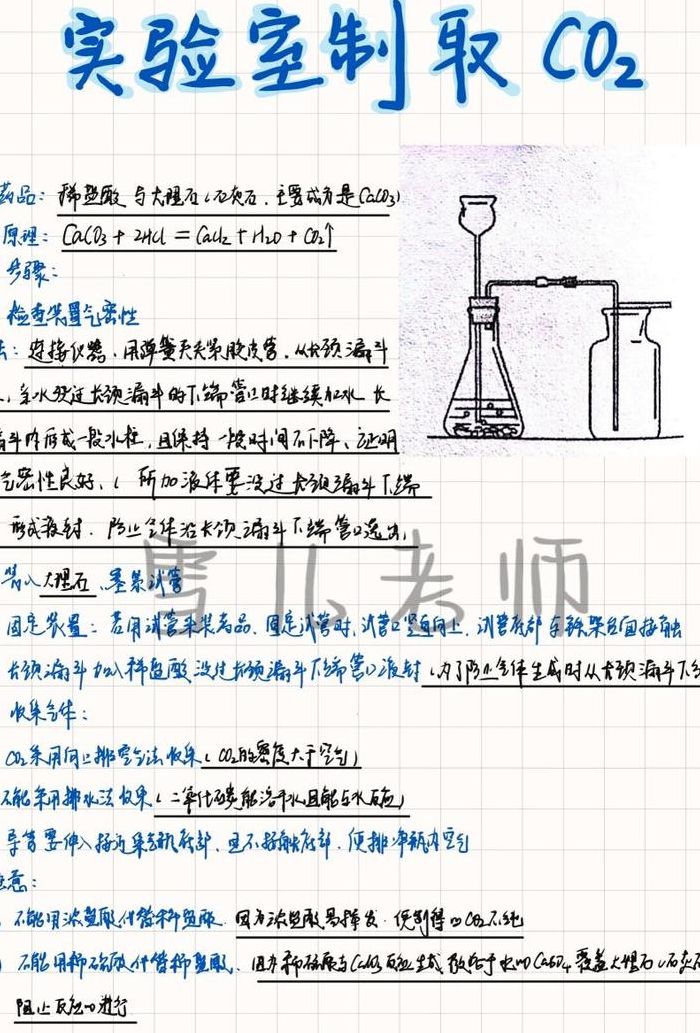 实验室制取 CO₂
药品: 稀盐酸与大理石(石灰石.主要成分是CaCO3)
原理: CaCO3 + 2HCl = CaCl2 + H2O + CO2↑
步骤:
检查装置气密性
法: 连接仪器.用弹簧夹夹紧胶皮管.从长颈漏斗
.至水没过长颈漏斗的下端管口时继续加水 长
漏斗内形成一段水柱,且保持一段时间不下降、证明
气密性良好、(所加液体要没过长颈漏斗下端
形成液封.防止气体沿长颈漏斗下端管口逸出.
装入大理石、 集试管
固定装置: 若用试管来装药品、固定试管时,试管口竖直向上.试管底部与铁架台面接触
长颈漏斗加入稀盐酸没过长颈漏斗下端管口液封(为了防止气体生成时从长颈漏斗下
收集气体:
CO2采用向上排空气法收集(CO2的密度大于空气)
不能采用排水法收集(二氧化碳能溶于水且能与水反应)
导管要伸入接近集气瓶底部、且不接触底部.便排净瓶内空气
注意:
、不能用浓盐酸代替稀盐酸. 因为浓盐酸易挥发.使制得的CO2不纯
) 不能用稀硫酸代替稀盐酸、因为稀硫酸与CaCO3反应生成微溶于水的CaSO4,覆盖大理石(石灰石
阻止反应的进行
雪儿老师